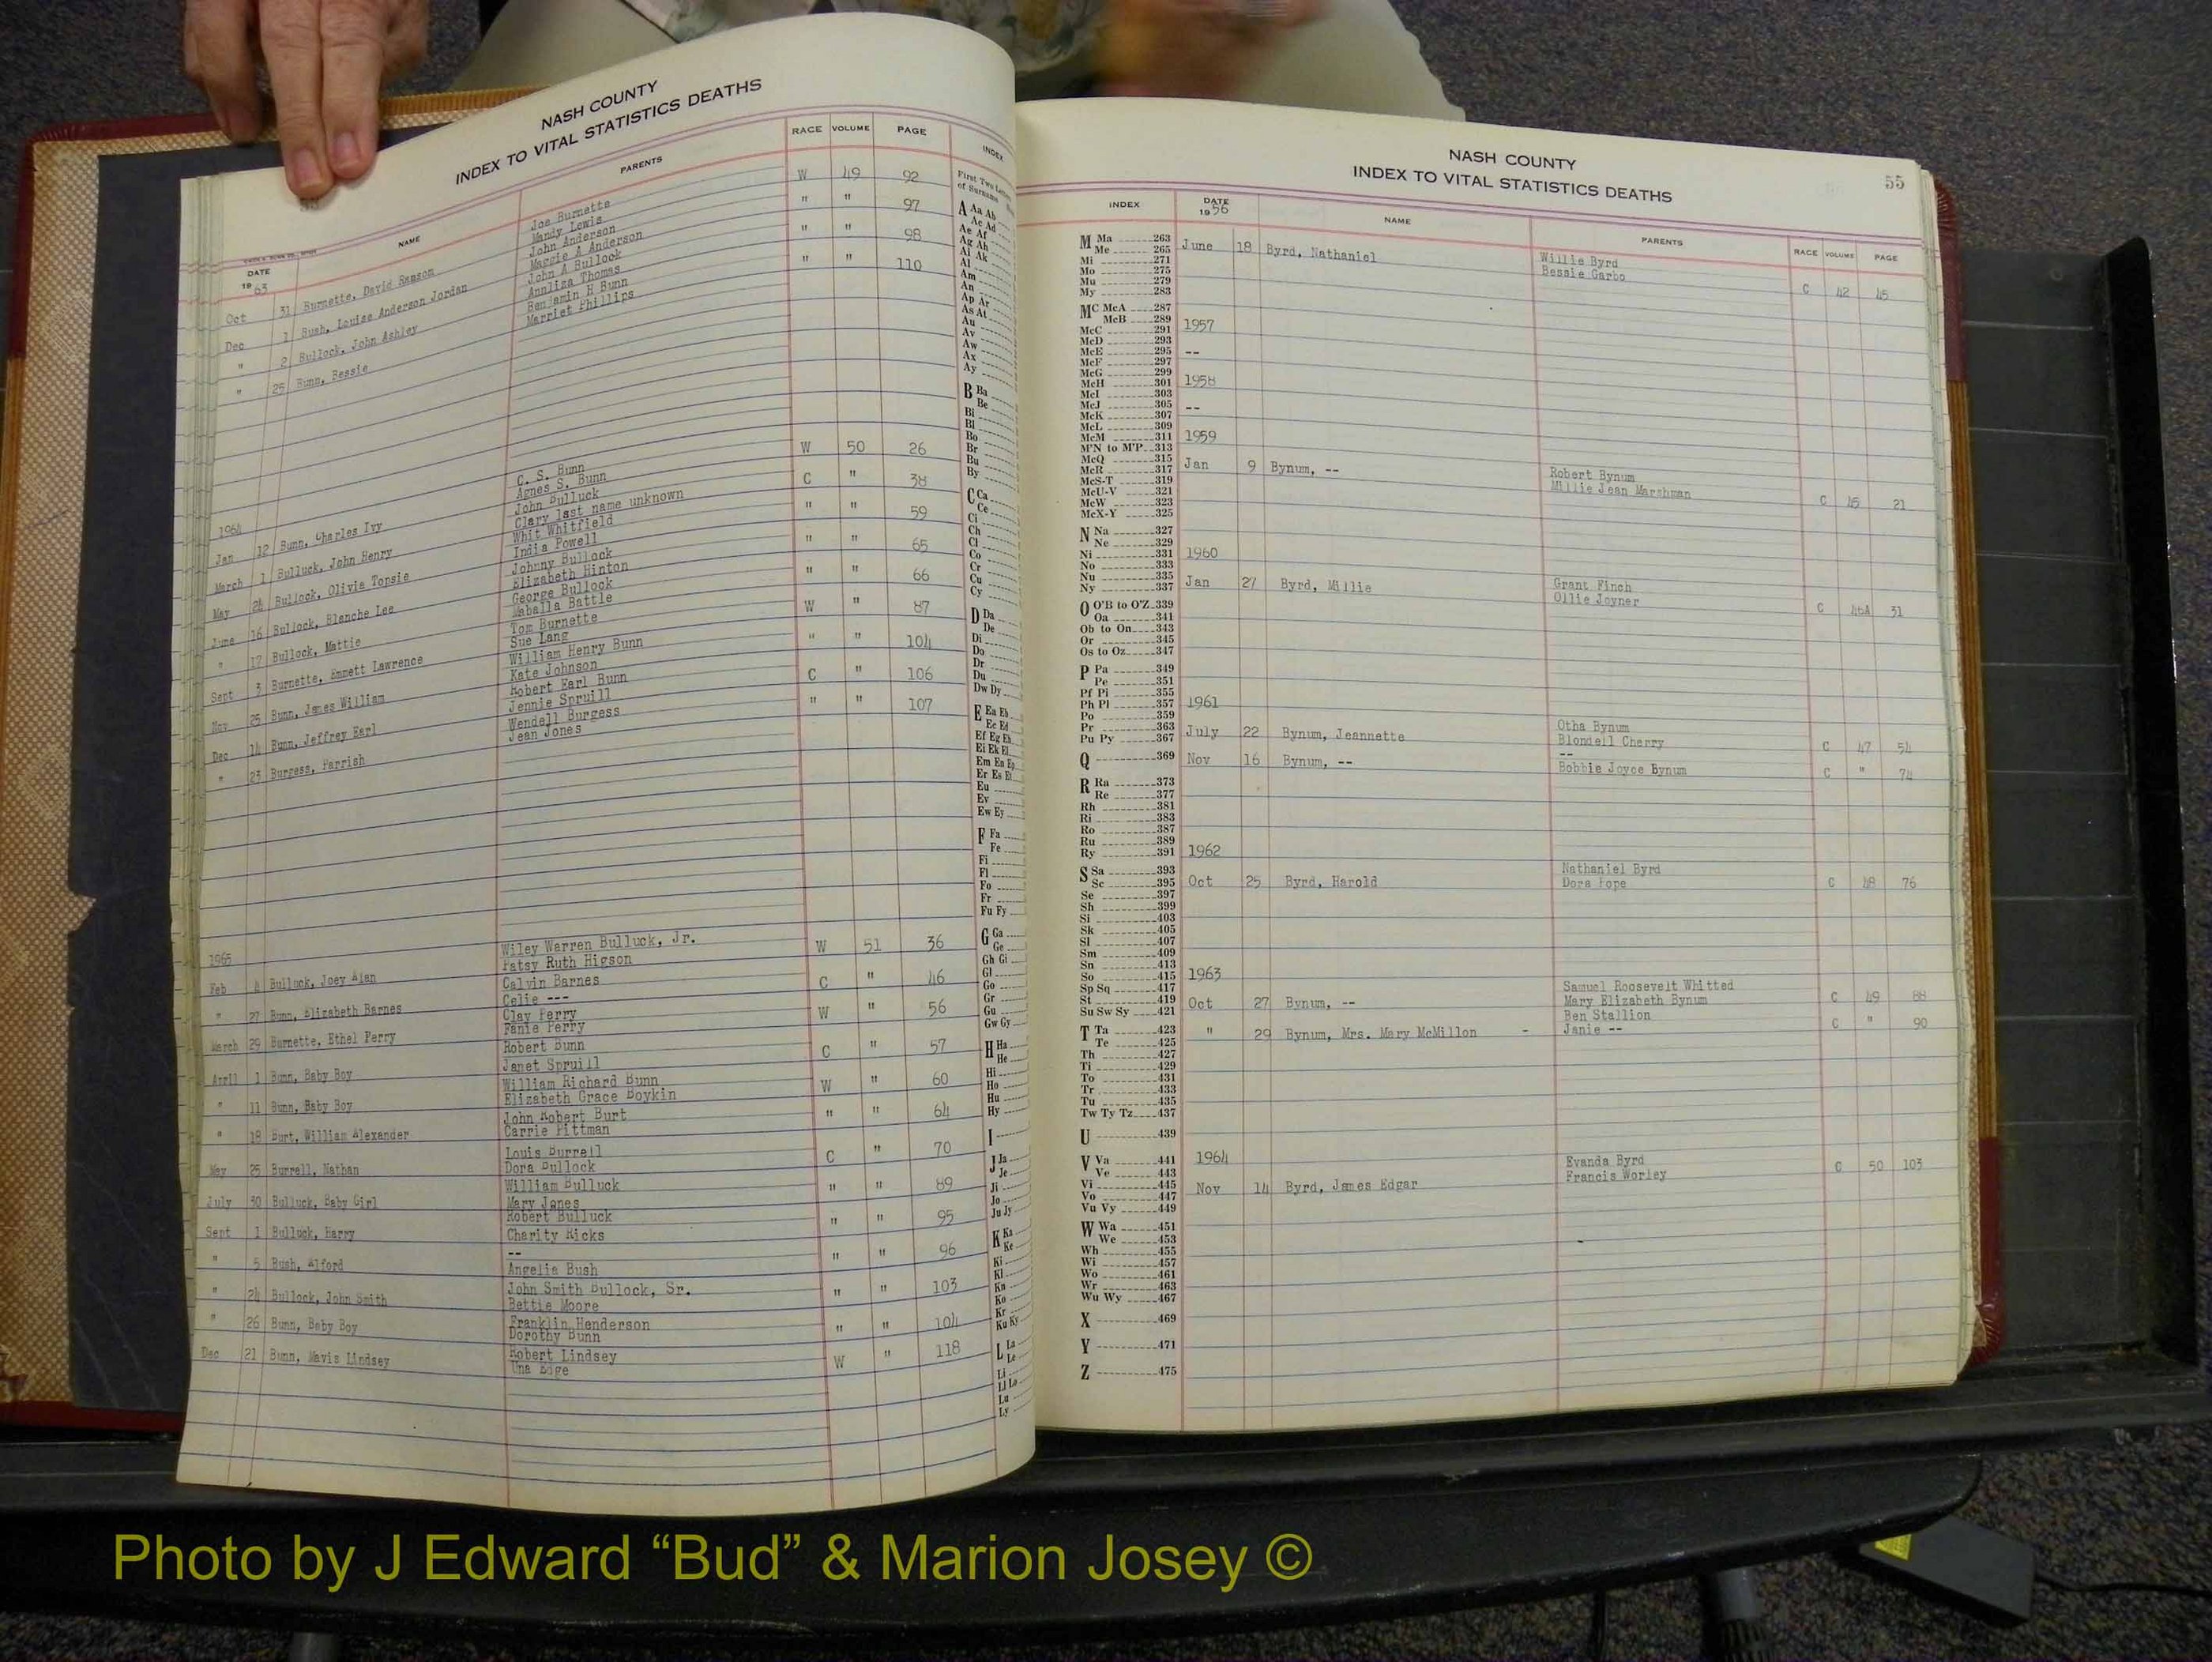 NASH COUNTY
INDEX TO VITAL STATISTICS DEATHS
DATE NAME PARENTS RACE VOLUME PAGE
1963
Oct 31 Burnette, David Ransom Joe Burnette W 49 92
Mandy Lewis
Dec 1 Bush, Louise Anderson Jordan John Anderson " " 97
Maggie A Anderson
" 2 Bullock, John Ashley John A Bullock " " 98
Annliza Thomas
" 25 Bunn, Bessie Benjamin H Bunn " " 110
Harriet Phillips
1964
Jan 12 Bunn, Charles Ivy C. S. Bunn W 50 26
Agnes S. Bunn
March 1 Bulluck, John Henry John Bulluck C " 38
Clary last name unknown
May 24 Bullock, Olivia Topsie Whit Whitfield " " 59
India Powell
June 16 Bullock, Blanche Lee Johnny Bullock " " 65
Elizabeth Hinton
" 17 Bullock, Mattie George Bullock " " 66
Maballa Battle
Sept 3 Burnette, Emmett Lawrence Tom Burnette W " 87
Sue Lang
Nov 25 Bunn, James William William Henry Bunn " " 104
Kate Johnson
Dec 14 Bunn, Jeffrey Earl Robert Earl Bunn C " 106
Jennie Spruill
" 23 Burgess, Parrish Wendell Burgess " " 107
Jean Jones
1965
Feb 4 Bulluck, Joey Alan Wiley Warren Bulluck, Jr. W 51 36
Patsy Ruth Higson
" 27 Bunn, Elizabeth Barnes Calvin Barnes C " 46
Celie ---
March 29 Burnette, Ethel Perry Clay Perry W " 56
Fanie Perry
April 1 Bunn, Baby Boy Robert Bunn C " 57
Janet Spruill
" 11 Bunn, Baby Boy William Richard Bunn W " 60
Elizabeth Grace Boykin
" 18 Burt, William Alexander John Robert Burt " " 64
Carrie Pittman
May 25 Burrell, Nathan Louis Burrell C " 70
Dora Bullock
July 30 Bulluck, Baby Girl William Bulluck " " 89
Mary Jones
Sept 1 Bulluck, Harry Robert Bulluck " " 95
Charity Ricks
" 5 Bush, Alford -- " " 96
Angelia Bush
" 24 Bullock, John Smith John Smith Bullock, Sr. " " 103
Bettie Moore
" 26 Bunn, Baby Boy Franklin Henderson " " 104
Dorothy Bunn
Dec 21 Bunn, Mavis Lindsey Robert Lindsey W " 118
Una Edge
INDEX
First Two Letters
of Surname
A Aa Ab
Ac Ad
Ae Af
Ag Ah
Ai Ak
Al
Am
An
Ap Ar
As At
Au
Av
Aw
Ax
Ay
B Ba
Be
Bi
Bl
Bo
Br
Bu
By
C Ca
Ce
Ci
Ch
Cl
Co
Cr
Cu
Cy
D Da
De
Di
Do
Dr
Du
Dw Dy
E Ea Eb
Ec Ed
Ef Eg Eh
Ei Ek El
Em En Ep
Er Es Et
Eu
Ev
Ew Ey
F Fa
Fe
Fi
Fl
Fo
Fr
Fu Fy
G Ga
Ge
Gh Gi
Gl
Go
Gr
Gu
Gw Gy
H Ha
He
Hi
Ho
Hu
Hy
I
J Ja
Je
Ji
Jo
Ju Jy
K Ka
Ke
Ki
Kl
Kn
Ko
Kr
Ku Ky
L La
Le
Li
Ll Lo
Lu
Ly
NASH COUNTY
INDEX TO VITAL STATISTICS DEATHS
55
INDEX DATE NAME PARENTS RACE VOLUME PAGE
M Ma 263
Me 265
Mi 271
Mo 275
Mu 279
My 283
MC McA 287
McB 289
McC 291
McD 293
McE 295
McF 297
McG 299
McH 301
McI 303
McJ 305
McK 307
McL 309
McM 311
M'N to M'P 313
McQ 315
McR 317
McS-T 319
McU-V 321
McW 323
McX-Y 325
N Na 327
Ne 329
Ni 331
No 333
Nu 335
Ny 337
O O'B to O'Z 339
Oa 341
Ob to On 343
Or 345
Os to Oz 347
P Pa 349
Pe 351
Pf Pi 355
Ph Pl 357
Po 359
Pr 363
Pu Py 367
Q 369
R Ra 373
Re 377
Rh 381
Ri 383
Ro 387
Ru 389
Ry 391
S Sa 393
Sc 395
Se 397
Sh 399
Si 403
Sk 405
Sl 407
Sm 409
Sn 413
So 415
Sp Sq 417
St 419
Su Sw Sy 421
T Ta 423
Te 425
Th 427
Ti 429
To 431
Tr 433
Tu 435
Tw Ty Tz 437
U 439
V Va 441
Ve 443
Vi 445
Vo 447
Vu Vy 449
W Wa 451
We 453
Wh 455
Wi 457
Wo 461
Wr 463
Wu Wy 467
X 469
Y 471
Z 475
1956
June 18 Byrd, Nathaniel Willie Byrd
Bessie Garbo C 42 45
1957
--
1958
--
1959
Jan 9 Bynum, -- Robert Bynum
Millie Jean Marshman C 45 21
1960
Jan 27 Byrd, Millie Grant Finch
Ollie Joyner C 46A 31
1961
July 22 Bynum, Jeannette Otha Bynum
Blondell Cherry C 47 54
Nov 16 Bynum, -- --
Bobbie Joyce Bynum C " 74
1962
Oct 25 Byrd, Harold Nathaniel Byrd
Dora Pope C 48 76
1963
Oct 27 Bynum, -- Samuel Roosevelt Whitted
Mary Elizabeth Bynum C 49 88
" 29 Bynum, Mrs. Mary McMillon - Ben Stallion
Janie -- C " 90
1964
Nov 14 Byrd, James Edgar Evanda Byrd C 50 103
Francis Worley
Photo by J Edward “Bud” & Marion Josey ©